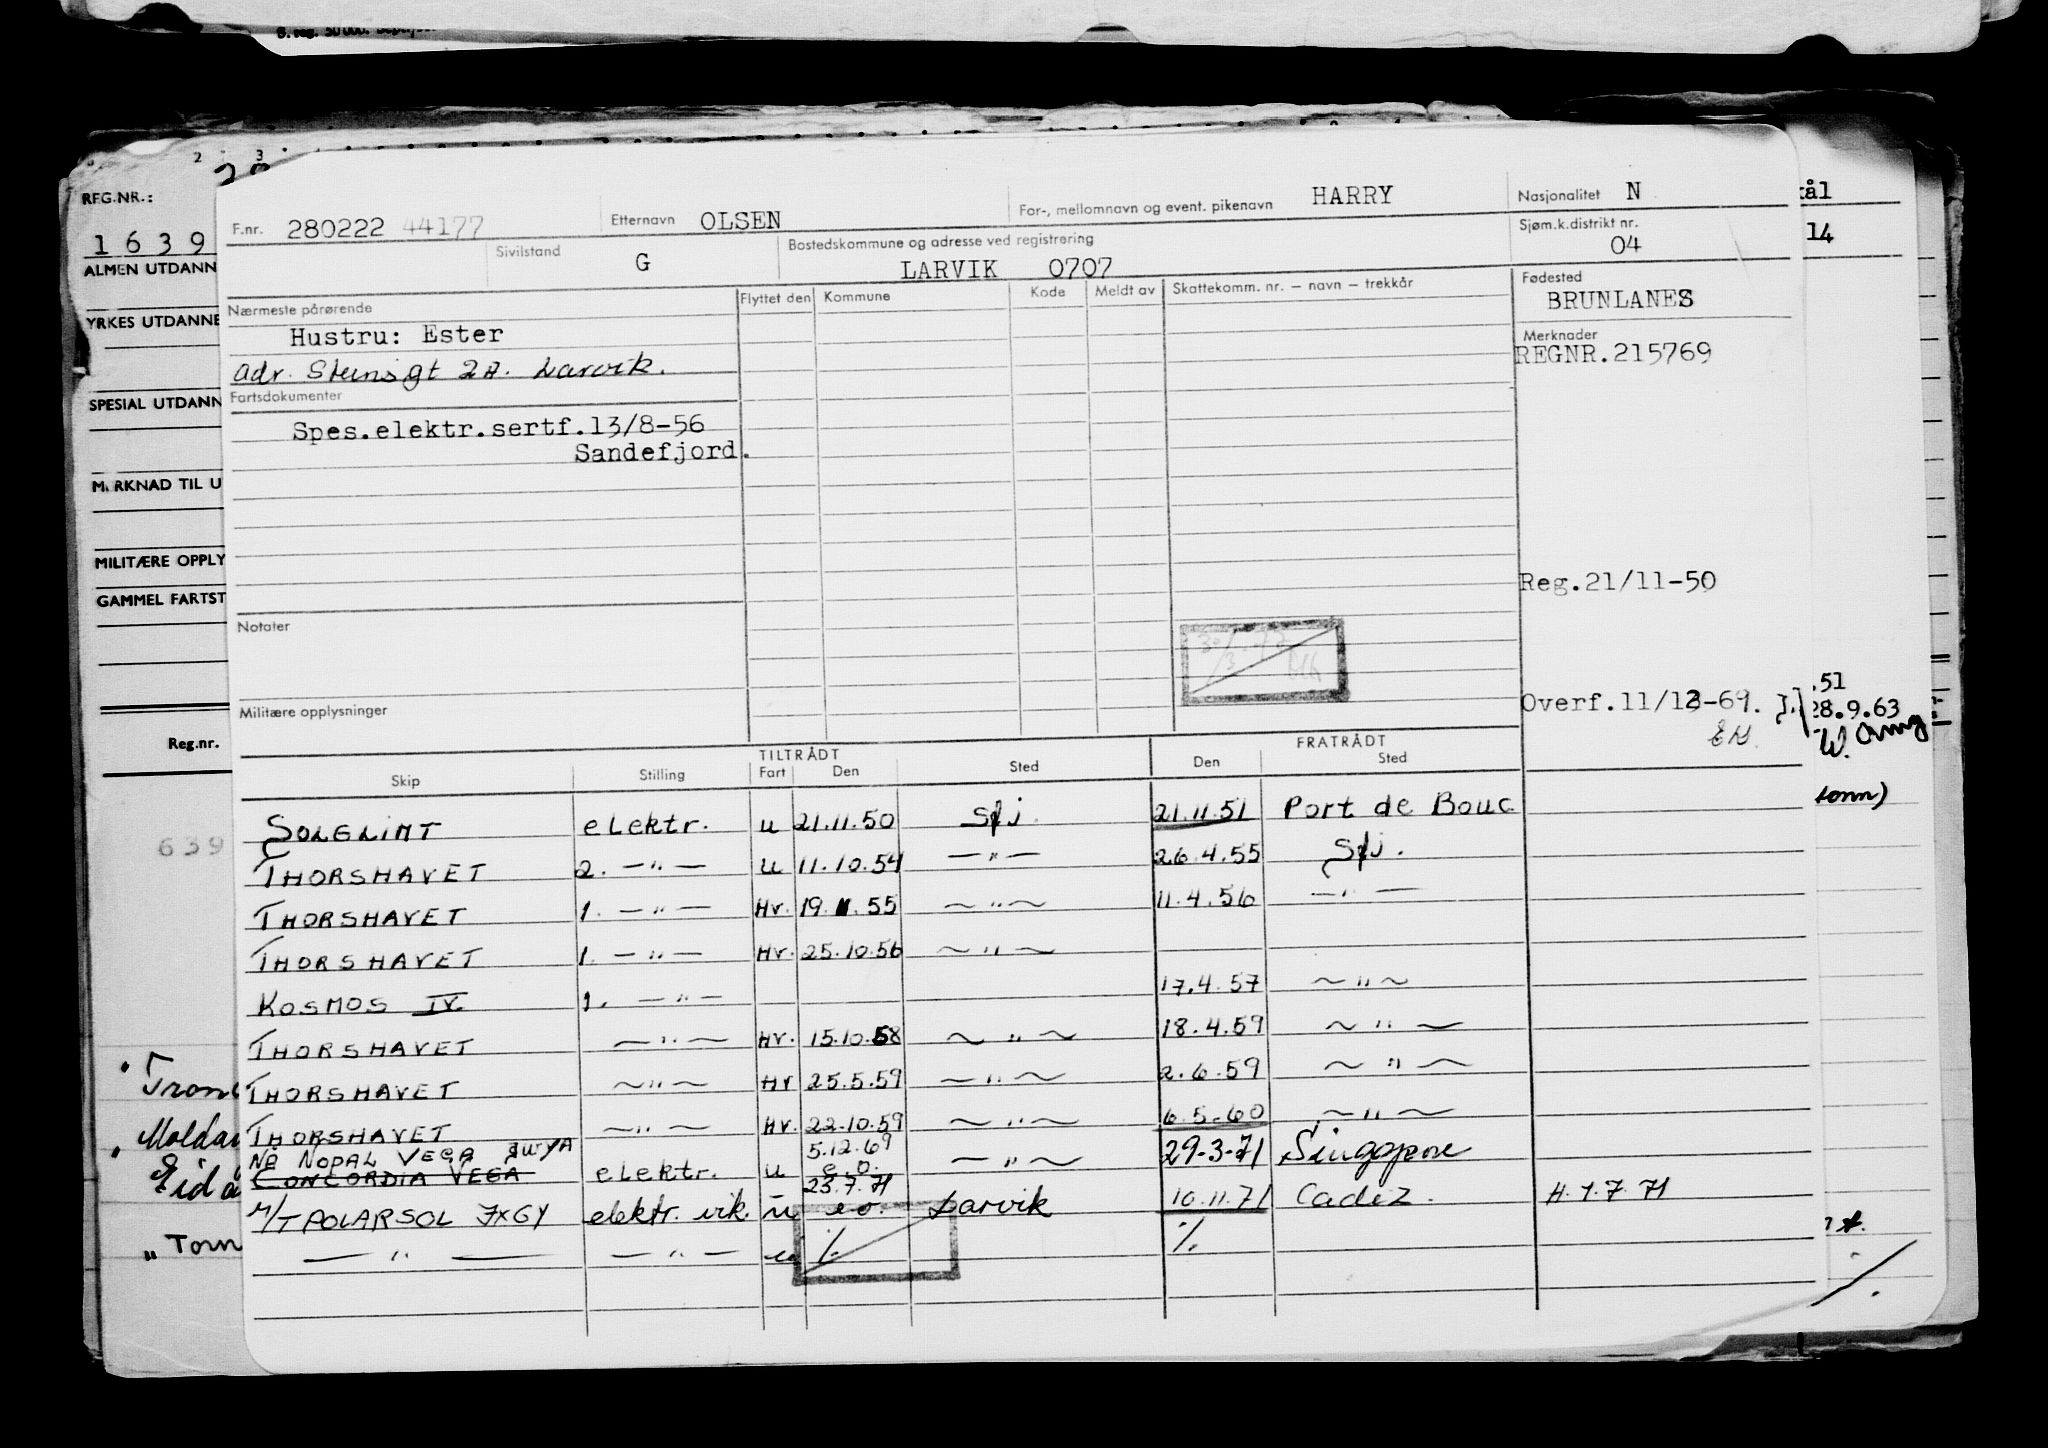 S. reg. 50 000.
2 3
REG.NR.:
1 6 3 9
ALMEN UTDANN
YRKES UTDANNE
SPESIAL UTDANN
MERKNAD TIL U
MILITÆRE OPPLY
GAMMEL FARTST
Reg.nr.
639
F.nr. 280222 44177 Etternavn OLSEN For-, mellomnavn og event. pikenavn HARRY Nasjonalitet N
Sivilstand G Bostedskommune og adresse ved registrering LARVIK 0707 Sjøm.k.distrikt nr. 04
Nærmeste pårørende Flyttet den Kommune Kode Meldt av Skattekomm. nr. – navn – trekkår Fødested BRUNLANES
Hustru: Ester
Merknader
adr. Steinsgt 2A. Larvik. REGNR.215769
Fartsdokumenter
Spes.elektr.sertf.13/8-56
Sandefjord.
Reg.21/11-50
Notater
Overf.11/12-69.
Militære opplysninger
TILTRÅDT FRATRÅDT
Skip Stilling Fart Den Sted Den Sted
SOLGLIMT elektr. u 21.11.50 Sfj. 21.11.51 Port de Bouc
THORSHAVET 2. — " — u 11.10.54 — " — 26.4.55 Sfj.
THORSHAVET 1. — " — Hv. 19.11.55 ~ " ~ 11.4.56 — " —
THORSHAVET 1. — " — Hv. 25.10.56 ~ " ~
KOSMOS IV. 1. — " — 17.4.57 ~ " ~
THORSHAVET — " ~ Hv. 15.10.58 ~ " ~ 18.4.59 ~ " ~
THORSHAVET ~ " ~ Hv 25.5.59 — " ~ 2.6.59 ~ " ~
THORSHAVET ~ " ~ Hv. 22.10.59 ~ " ~ 6.5.60 ~ " ~
NÅ NOPAL VEGA 5.12.69
CONCORDIA VEGA elektr. u e.o. — " ~ 29-3-71 Singapore
23.7.71
M/T POLARSOL JXGY elektr. vik. u e.o. Larvik 10.11.71 Cadiz. H. 1.7.71
— " — — " — %. %.
kål
14
.51
28.9.63
tonn)
Tron
Moldan
Eid
" Torn